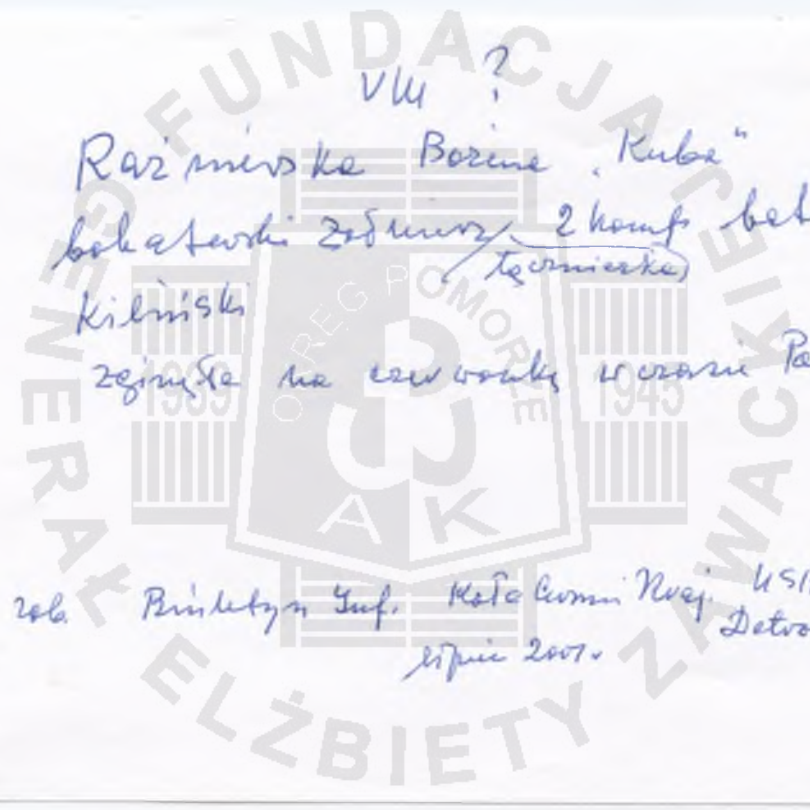 VIII ?
Raźniewska Bożena „Kuba"
bohaterski żołnierz 2 komp bat
łączniczka
Kiliński
zginęła na czerwonkę w czasie
zob. Biuletyn Inf. Koła Armii Kraj. USA
lipiec 2001 r
FUNDACJA
GENERAŁ ELŻBIETY ZAWACKIEJ
OKRĘG POMORZE
1939 1945
AK